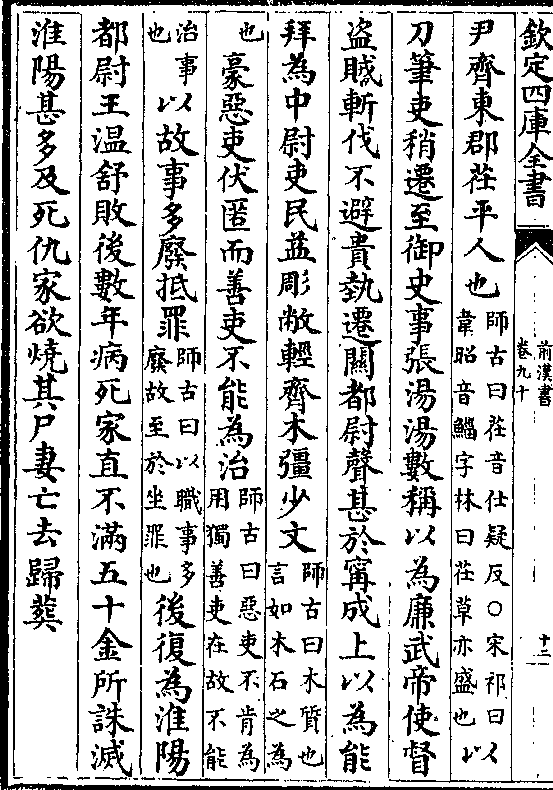 欽定四庫全書
前漢書
卷九十
十二
尹齊東郡茌平人也師古曰茌音仕疑反○宋祁曰以韋昭音鯔字林曰茌草亦盛也以
刀筆吏稍遷至御史事張湯湯數稱以為廉武帝使督
盜賊斬伐不避貴埶遷關都尉聲甚於甯成上以為能
拜為中尉吏民益彫敝輕齊木彊少文師古曰木質也言如木石之為
也豪惡吏伏匿而善吏不能為治師古曰惡吏不肯為用獨善吏在故不能
治事也以故事多廢抵罪師古曰以職事多廢故至於坐罪也後復為淮陽
都尉王温舒敗後數年病死家直不滿五十金所誅滅
淮陽甚多及死仇家欲燒其尸妻亡去歸葬